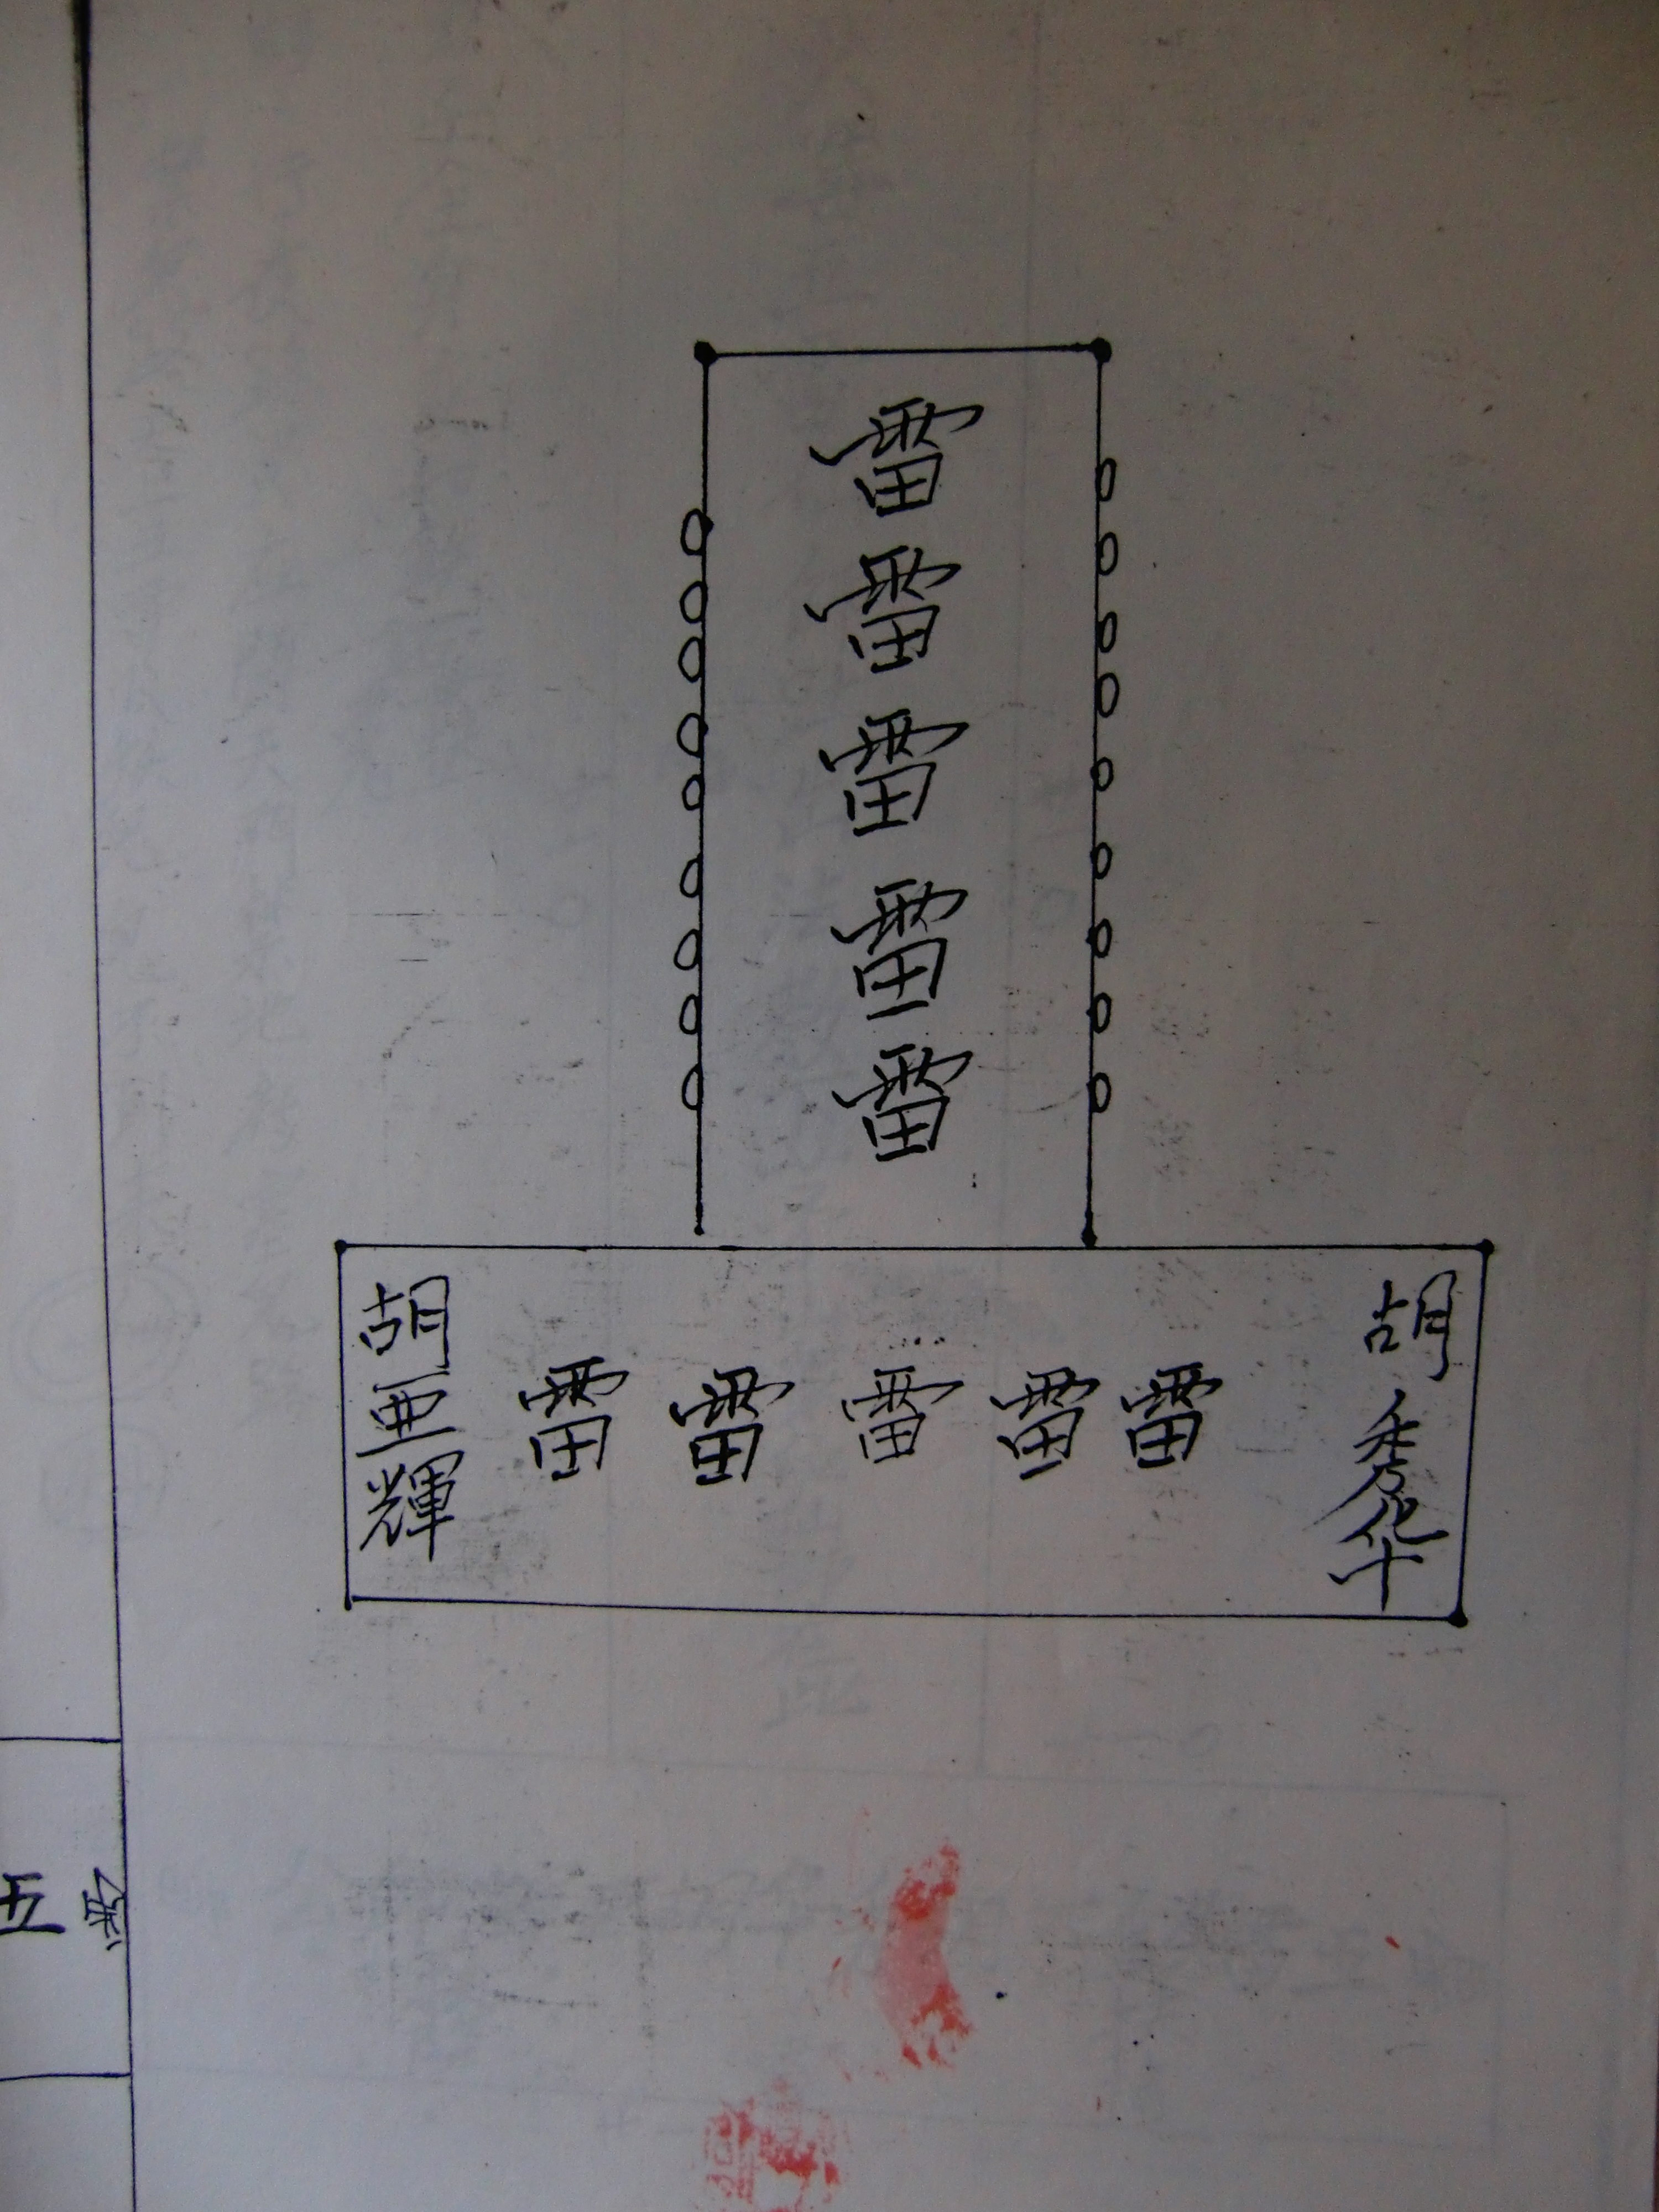 雷
雷
雷
雷
雷
胡亜輝
雷雷雷雷雷
胡秀华
五